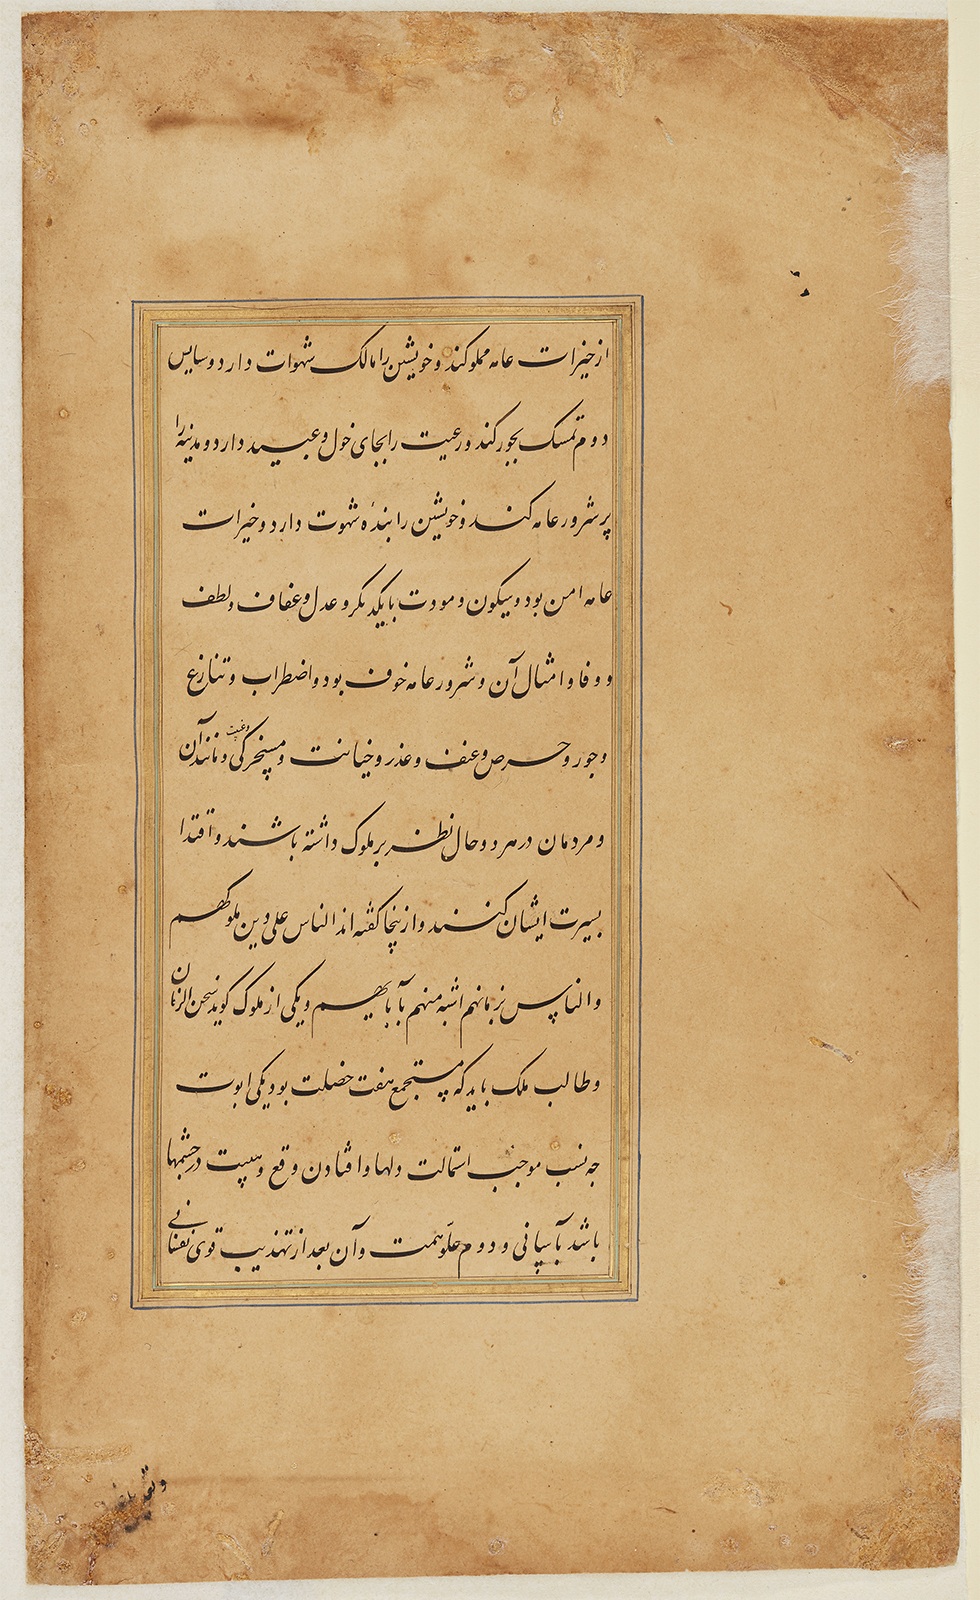 از خیرات عامه مملو کند و خویشتن را مالک شهوات دارد و سایس
دوم تمسک بجور کند و رعیت را بجای خول و عبید دارد و مدینه را
پر شرور عامه کند و خویشتن را بندهٔ شهوت دارد و خیرات
عامه امن بود و سکون و مودت با یکدیگر و عدل و عفاف و لطف
و وفا و امثال آن و شرور عامه خوف بود و اضطراب و تنازع
و جور و حرص و عنف و غذر و خیانت و مسخرگی و غیبت و مانند آن
و مردمان در هر دو حال نظر بر ملوک داشته باشند و اقتدا
بسیرت ایشان کنند و ازینجا گفته اند الناس علی دین ملوکهم
و الناس بزمانهم اشبه منهم بآبایهم و یکی از ملوک گوید نحن الزمان
و طالب ملک باید که مستجمع هفت خصلت بود یکی ابوت
چه نسب موجب استمالت دلها و افتادن وقع و هیبت در چشمها
باشد بآسانی و دوم علو همت و آن بعد از تهذیب قوی نفسانی